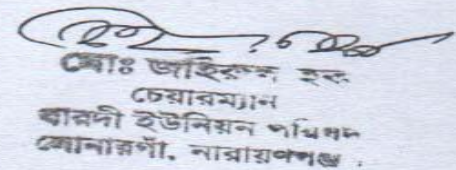 মোঃ জহিরুল হক
চেয়ারম্যান
বারদী ইউনিয়ন পরিষদ
সোনারগাঁ, নারায়ণগঞ্জ.